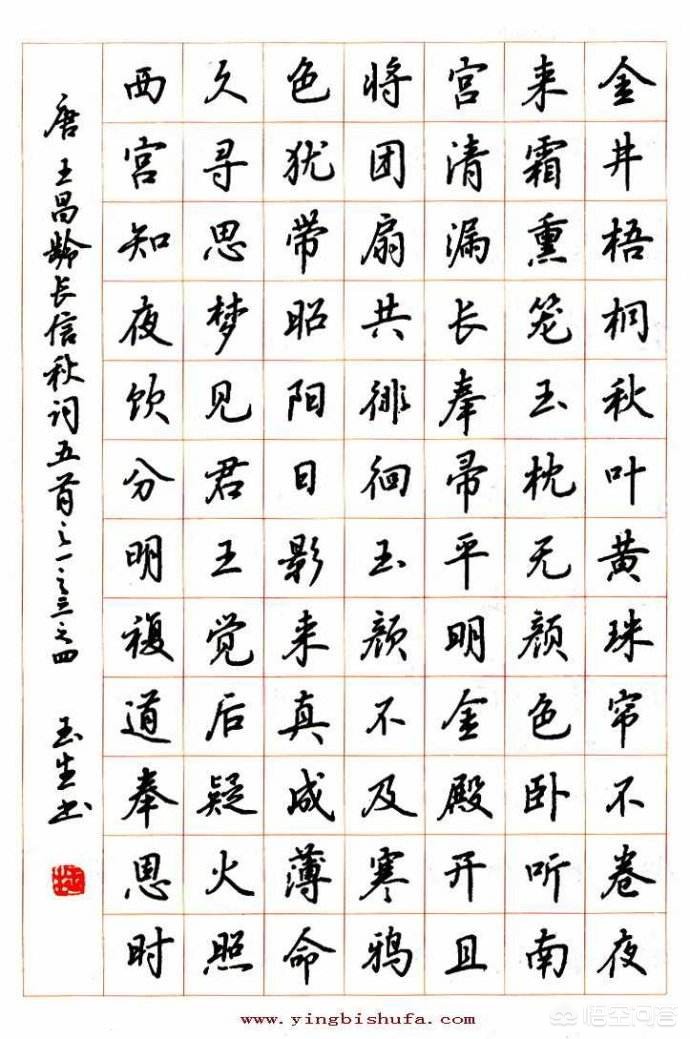 金井梧桐秋叶黄珠帘不卷夜
来霜熏笼玉枕无颜色卧听南
宫清漏长奉帚平明金殿开且
将团扇共徘徊玉颜不及寒鸦
色犹带昭阳日影来真成薄命
久寻思梦见君王觉后疑火照
西宫知夜饮分明複道奉恩时
唐王昌龄长信秋词五首之一之三之四 玉生书
www.yingbishufa.com
悟空问答